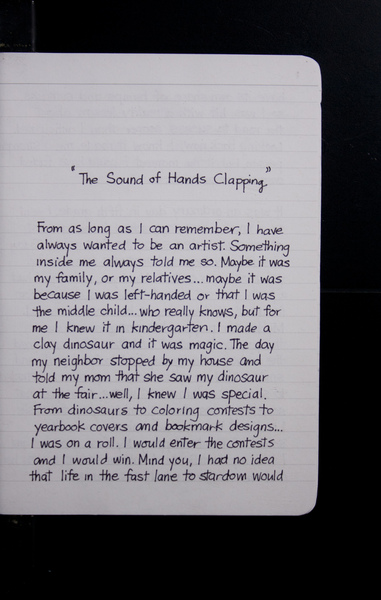 "The Sound of Hands Clapping"
From as long as I can remember, I have
always wanted to be an artist. Something
inside me always told me so. Maybe it was
my family, or my relatives... maybe it was
because I was left-handed or that I was
the middle child... who really knows, but for
me I knew it in kindergarten. I made a
clay dinosaur and it was magic. The day
my neighbor stopped by my house and
told my mom that she saw my dinosaur
at the fair... well, I knew I was special.
From dinosaurs to coloring contests to
yearbook covers and bookmark designs...
I was on a roll. I would enter the contests
and I would win. Mind you, I had no idea
that life in the fast lane to stardom would